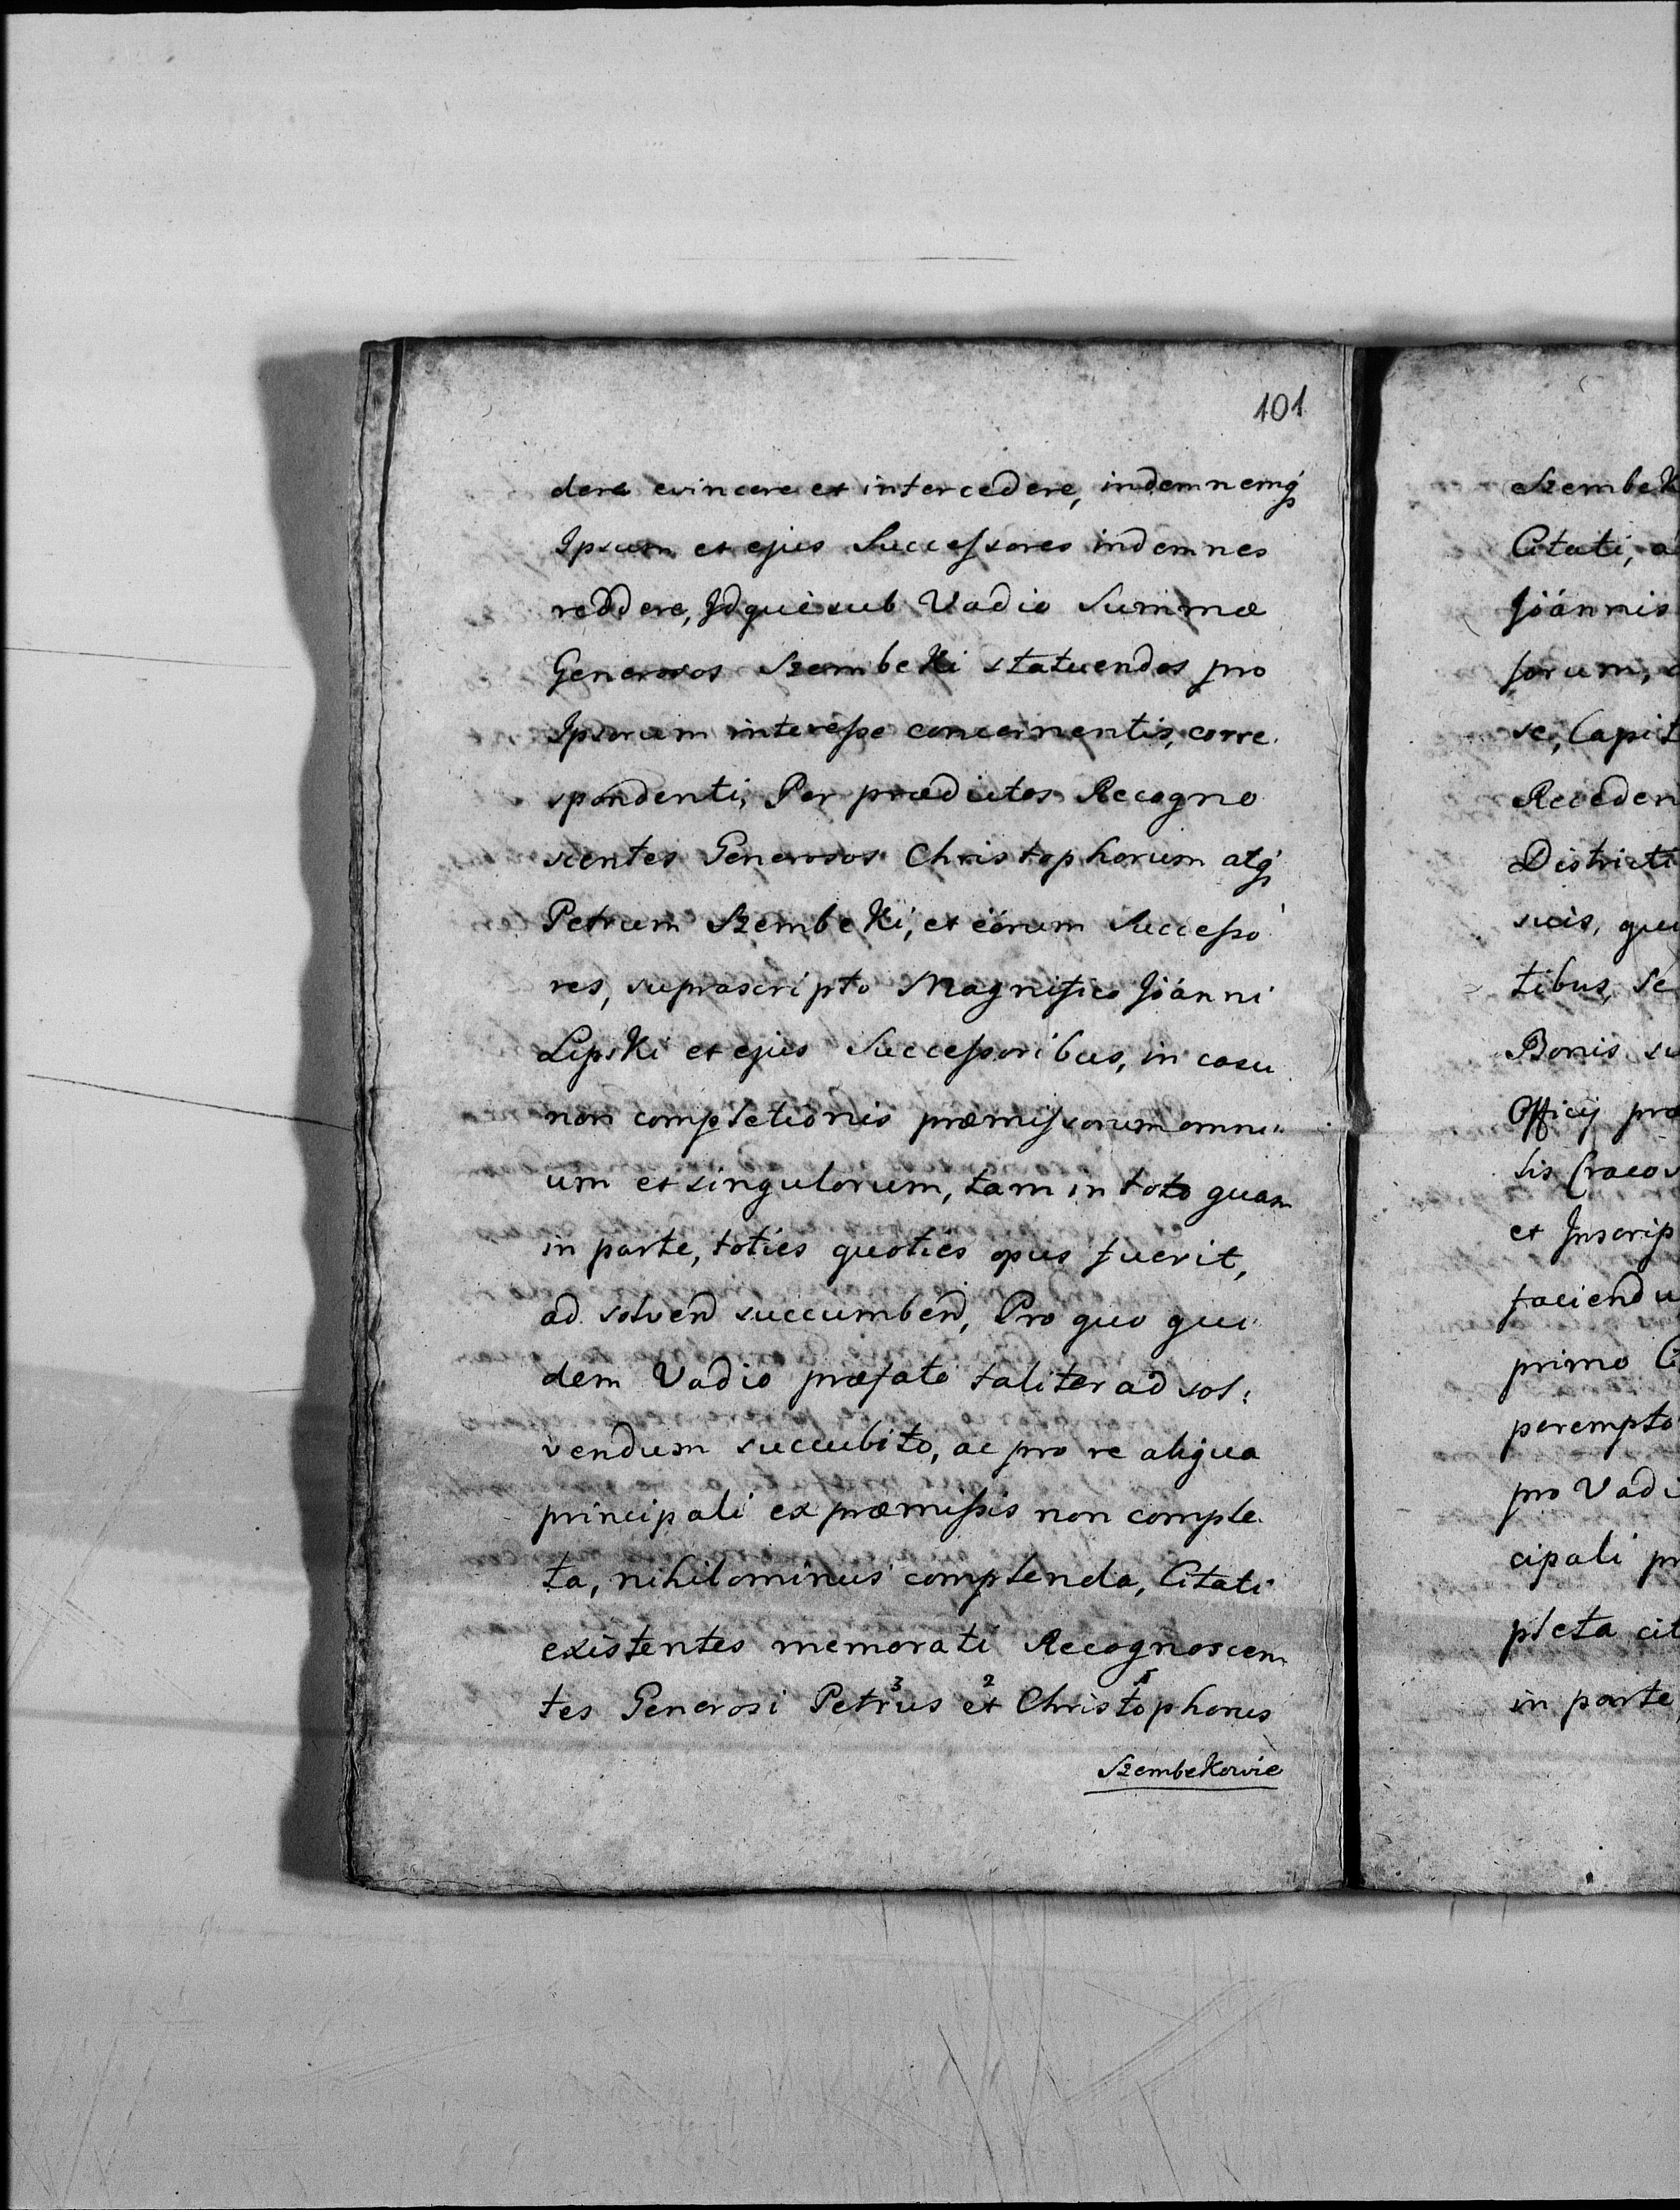 101
dere evincere et intercedere, indemnemq́
Ipsum et ejus Successores indemnes
reddere, Idque sub Vadio Summæ
Generosos Szembeki statuendos pro
Ipsorum interesse concernentis, corre.
spondenti, Per prædictos Recogno
scentes Generosos Christophorum atq́
Petrum Szembeki, et eórum Successo
res, suprascripto Magnifico Joánni
Lipski et ejus Successoribus, in casu
non completionis præmissorum omni..
um et singulorum, tam in toto quam
in parte, toties quoties opus fuerit,
ad solvend succumbend, Pro quo qui
dem Vadio præfato taliter ad sol:
vendum succubito, ac pro re aliqua
principali ex præmissis non comple.
ta, nihilominus complenda, Citati
existentes memorati Recognoscen
3 2 1
tes Generosi Petrus et Christophorus
Szembekowie
Szembek
Citati, a
Joánnis
sorum,
se, Capit
Receden
Districti
sicis, qui
tibus, se
Bonis su
Officij præ
sis Cracov
et Inscrip
faciendu
primo
perempto
pro Vadi
cipali pr
pleta cit
in parte,